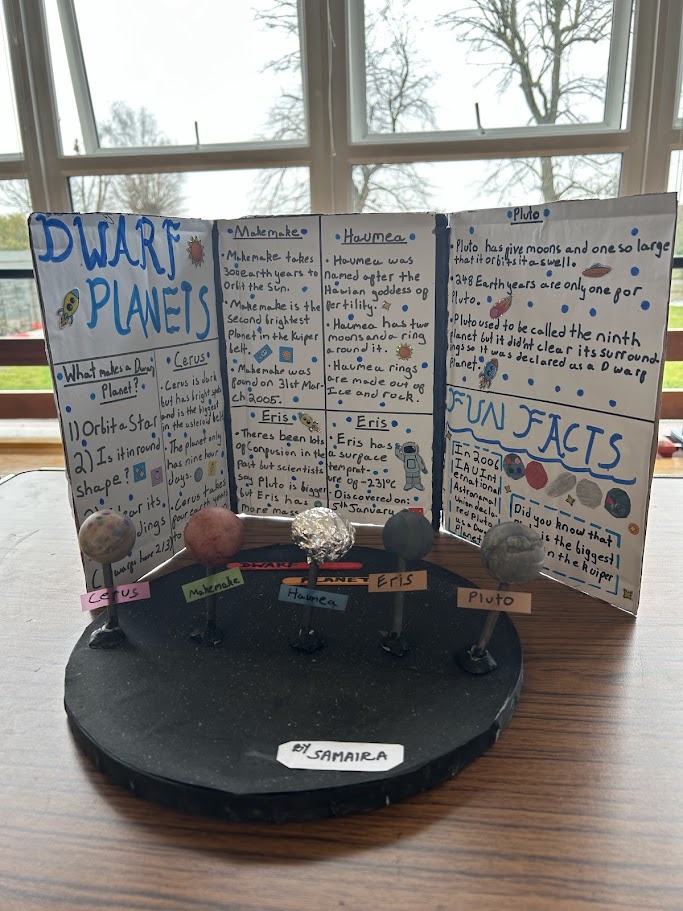 DWARF
PLANETS
What makes a Dwarf
Planet?
1) Orbit a Star
2) Is it in round
shape?
Cerus
Cerus is dark
but has bright spots
and is the biggest
in the asteroid belt
The planet only
has nine hour
days.
Cerus takes
four earth years
Makemake
Makemake takes
300 earth years to
Orbit the Sun.
Makemake is the
second brightest
Planet in the Kuiper
belt.
Makemake was
found on 31st Mar-
ch 2005.
Haumea
Haumea was
named after the
Hawiian goddess of
fertility.
Haumea has two
moons and a ring
around it.
Haumea rings
are made out of
Ice and rock.
Eris
Theres been lots
of Confusion in the
Past but scientists
say Pluto is bigger
but Eris has
more mass
Eris
Eris has
a surface
temprat-
ure of -231°C
Discovered on:
5th January
Pluto
Pluto has five moons and one so large
that it orbits it as well.
248 Earth years are only one for
Pluto.
Pluto used to be called the ninth
planet but it didn't clear its surround-
ings so it was declared as a Dwarf
Planet.
FUN FACTS
In 2006
IAU Int
ernational
Astronamal
Union decla
red pluto
as a Dwarf
Planet
Did you know that
is the biggest
in the Kuiper
DWARF
PLANET
Cerus
Makemake
Haumea
Eris
Pluto
BY SAMAIRA